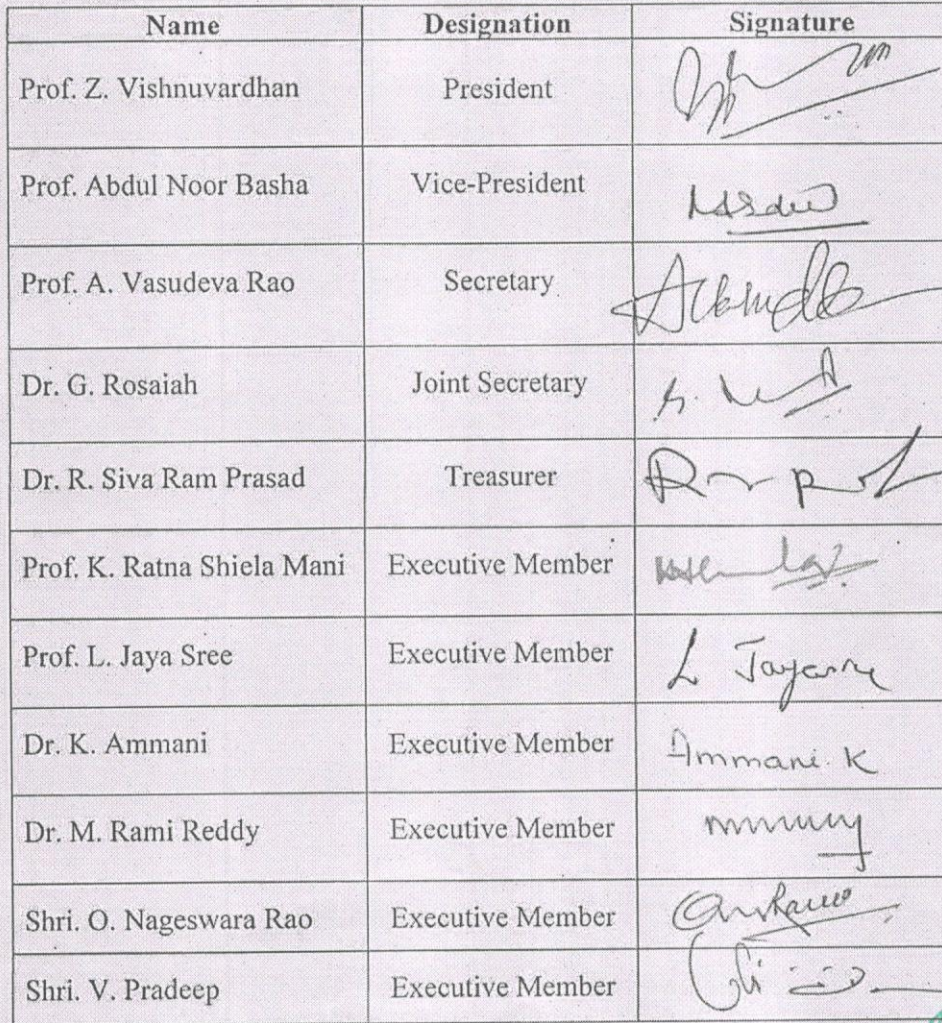 Name Designation Signature
Prof. Z. Vishnuvardhan President
Prof. Abdul Noor Basha Vice-President
Prof. A. Vasudeva Rao Secretary
Dr. G. Rosaiah Joint Secretary
Dr. R. Siva Ram Prasad Treasurer
Prof. K. Ratna Shiela Mani Executive Member
Prof. L. Jaya Sree Executive Member L Jayasree
Dr. K. Ammani Executive Member Ammani. K
Dr. M. Rami Reddy Executive Member
Shri. O. Nageswara Rao Executive Member
Shri. V. Pradeep Executive Member